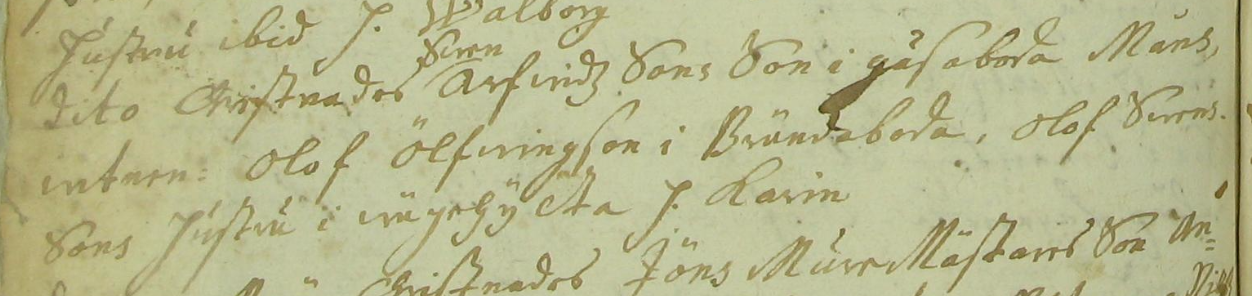 Hustru ibid J. Walborg
Swen
dito Christnades Arfwidz Sons Son i gåsaboda Måns,
witnen: Olof Ölfwringson i Brändaboda, Olof Swens-
Sons Hustru i J. Karin
Christnades Jöns MurMästares Son An=